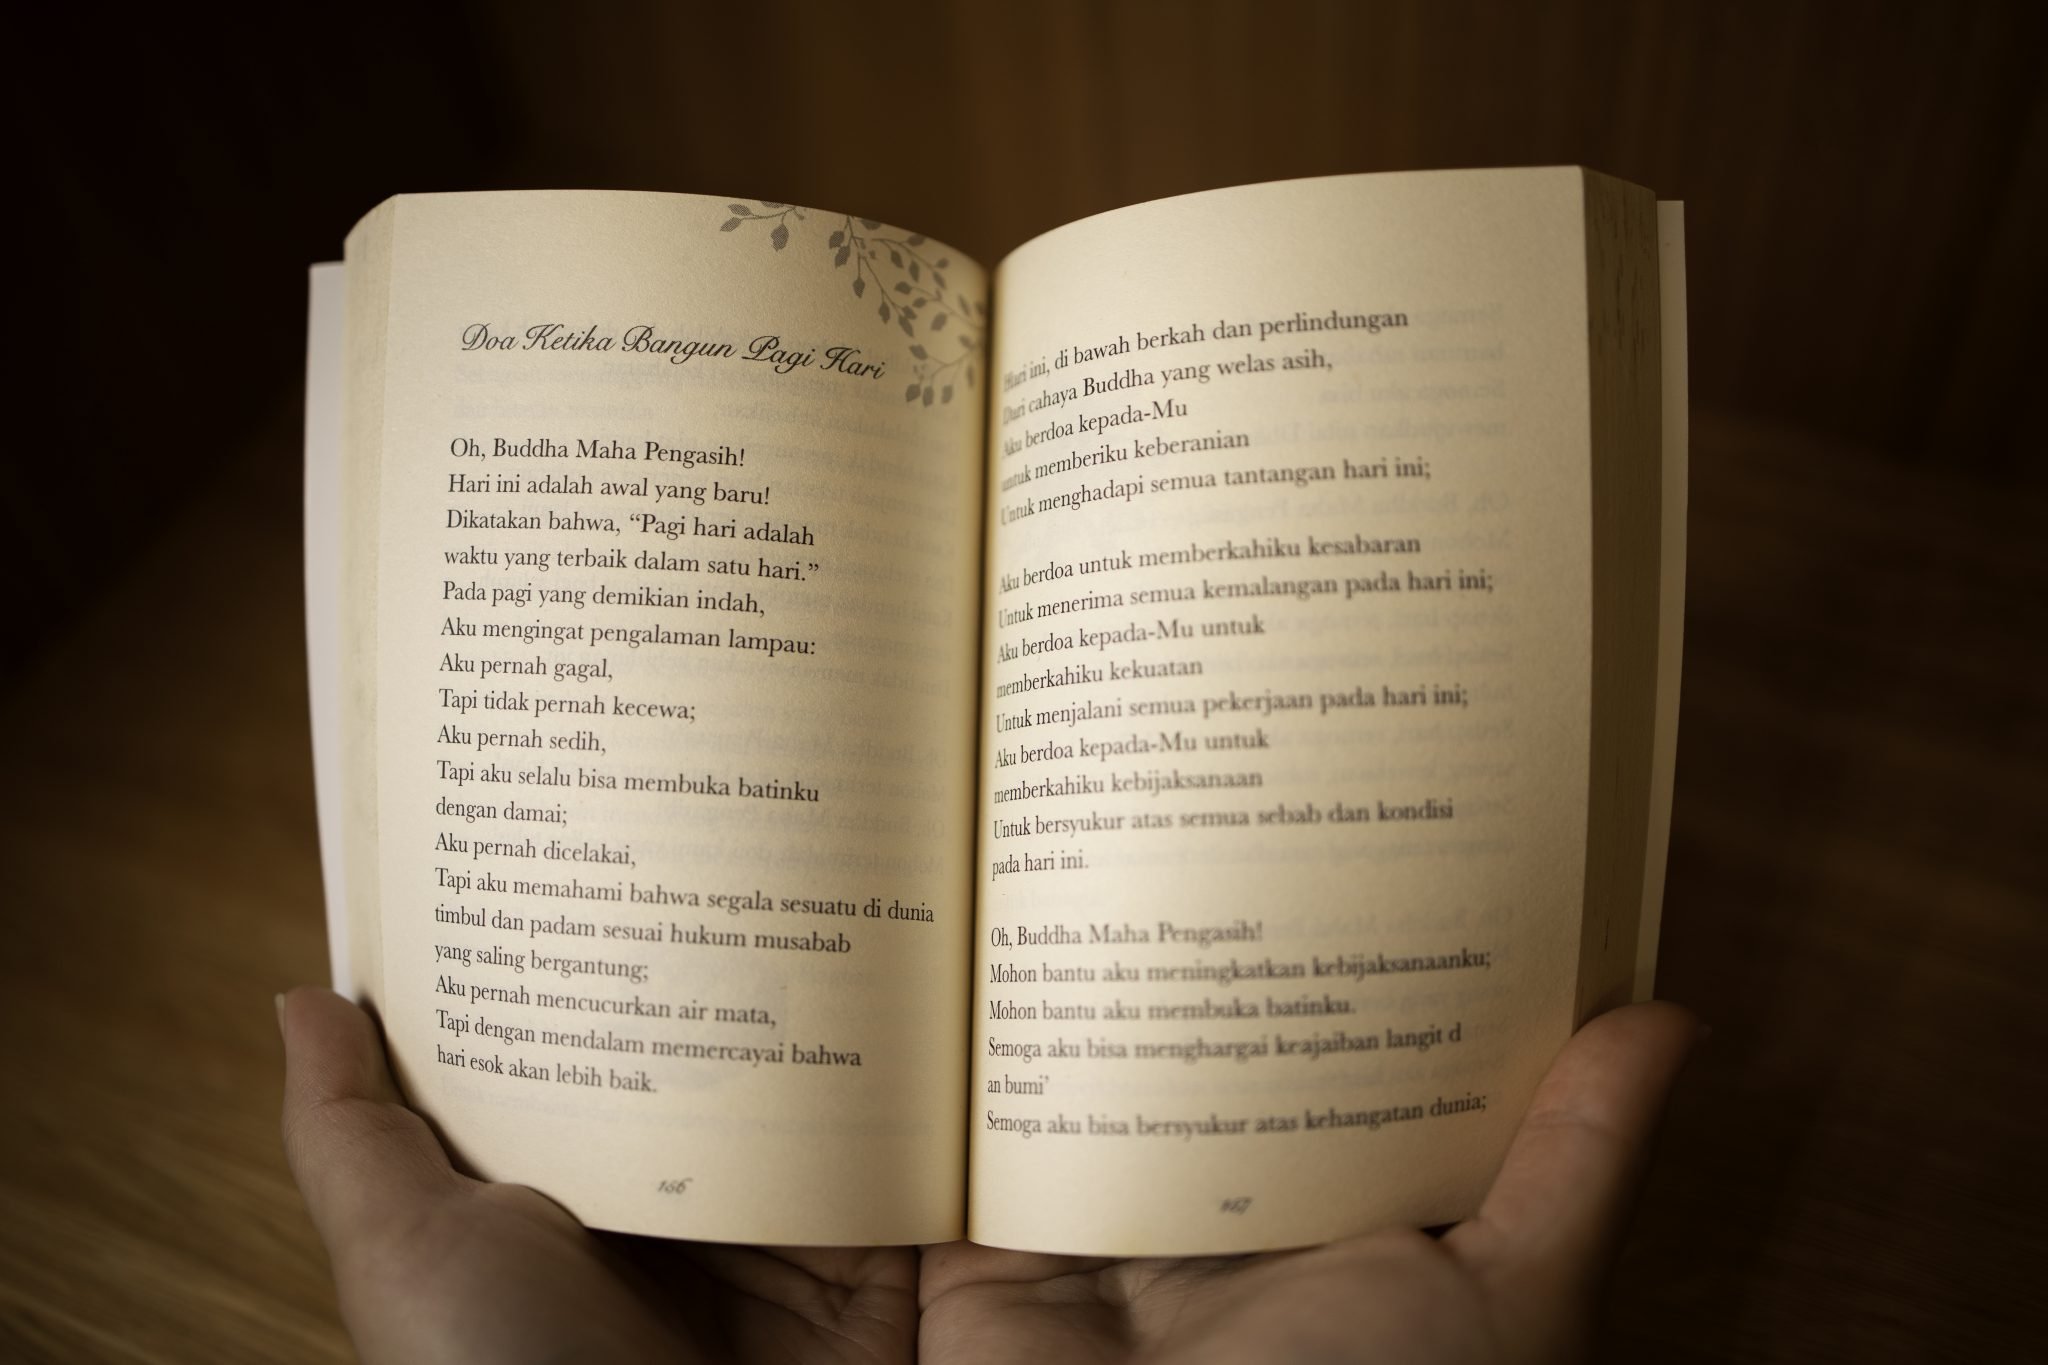 Doa Ketika Bangun Pagi Hari
Oh, Buddha Maha Pengasih!
Hari ini adalah awal yang baru!
Dikatakan bahwa, “Pagi hari adalah
waktu yang terbaik dalam satu hari.”
Pada pagi yang demikian indah,
Aku mengingat pengalaman lampau:
Aku pernah gagal,
Tapi tidak pernah kecewa;
Aku pernah sedih,
Tapi aku selalu bisa membuka batinku
dengan damai;
Aku pernah dicelakai,
Tapi aku memahami bahwa segala sesuatu di dunia
timbul dan padam sesuai hukum musabab
yang saling bergantung;
Aku pernah mencucurkan air mata,
Tapi dengan mendalam memercayai bahwa
hari esok akan lebih baik.
156
Hari ini, di bawah berkah dan perlindungan
Dari cahaya Buddha yang welas asih,
Aku berdoa kepada-Mu
untuk memberiku keberanian
Untuk menghadapi semua tantangan hari ini;
Aku berdoa untuk memberkahiku kesabaran
Untuk menerima semua kemalangan pada hari ini;
Aku berdoa kepada-Mu untuk
memberkahiku kekuatan
Untuk menjalani semua pekerjaan pada hari ini;
Aku berdoa kepada-Mu untuk
memberkahiku kebijaksanaan
Untuk bersyukur atas semua sebab dan kondisi
pada hari ini.
Oh, Buddha Maha Pengasih!
Mohon bantu aku meningkatkan kebijaksanaanku;
Mohon bantu aku membuka batinku.
Semoga aku bisa menghargai keajaiban langit d
an bumi’
Semoga aku bisa bersyukur atas kehangatan dunia;
157